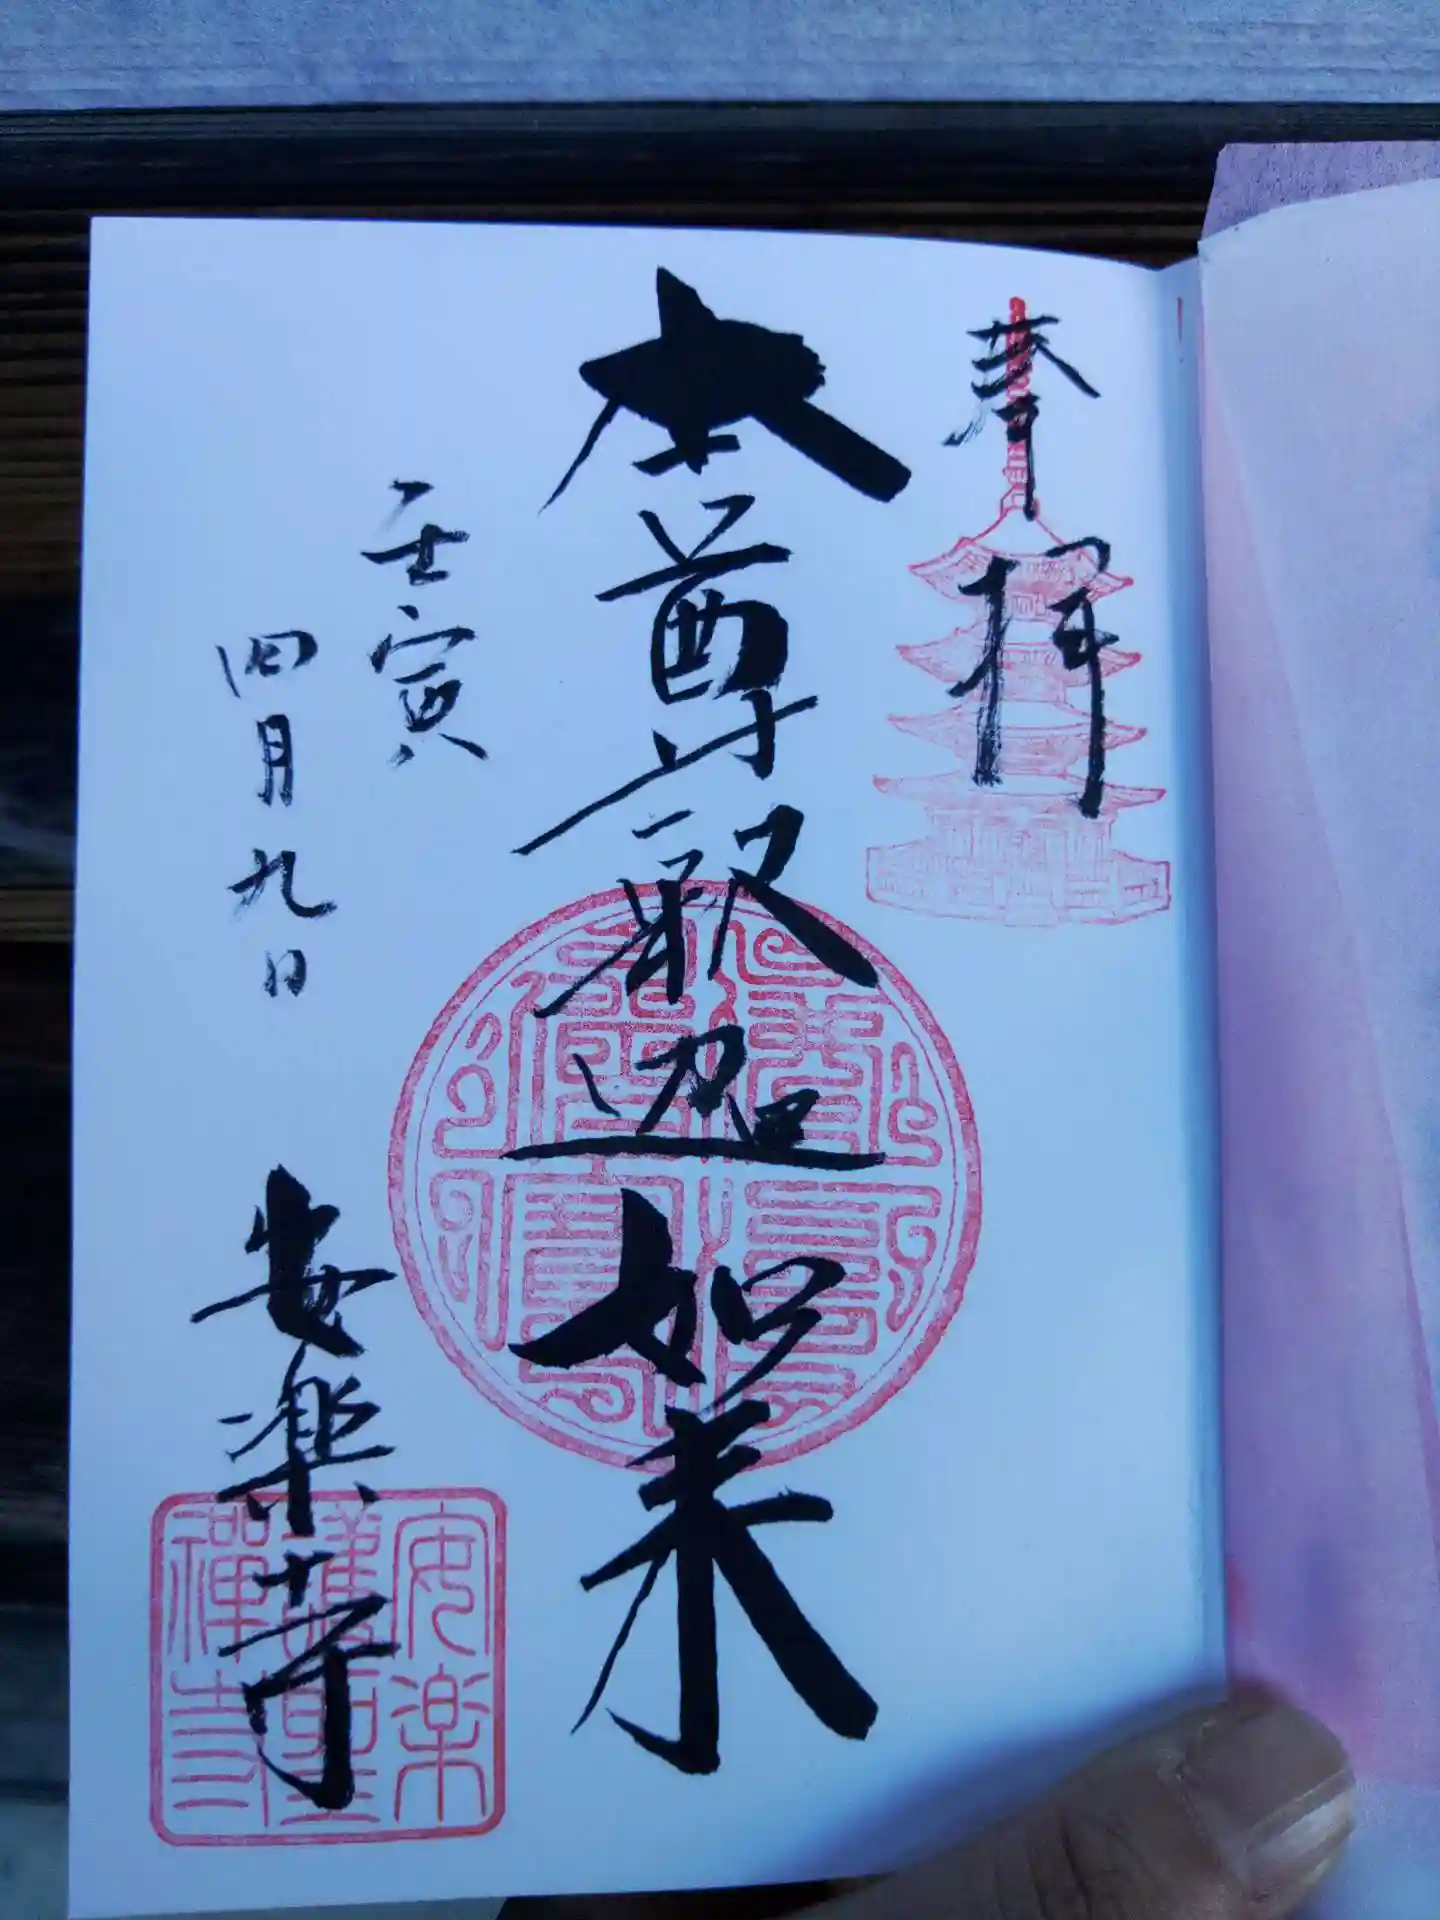 奉拝
本尊釈迦如来
壬寅
四月九日
安楽寺
安楽
護聖
禅寺